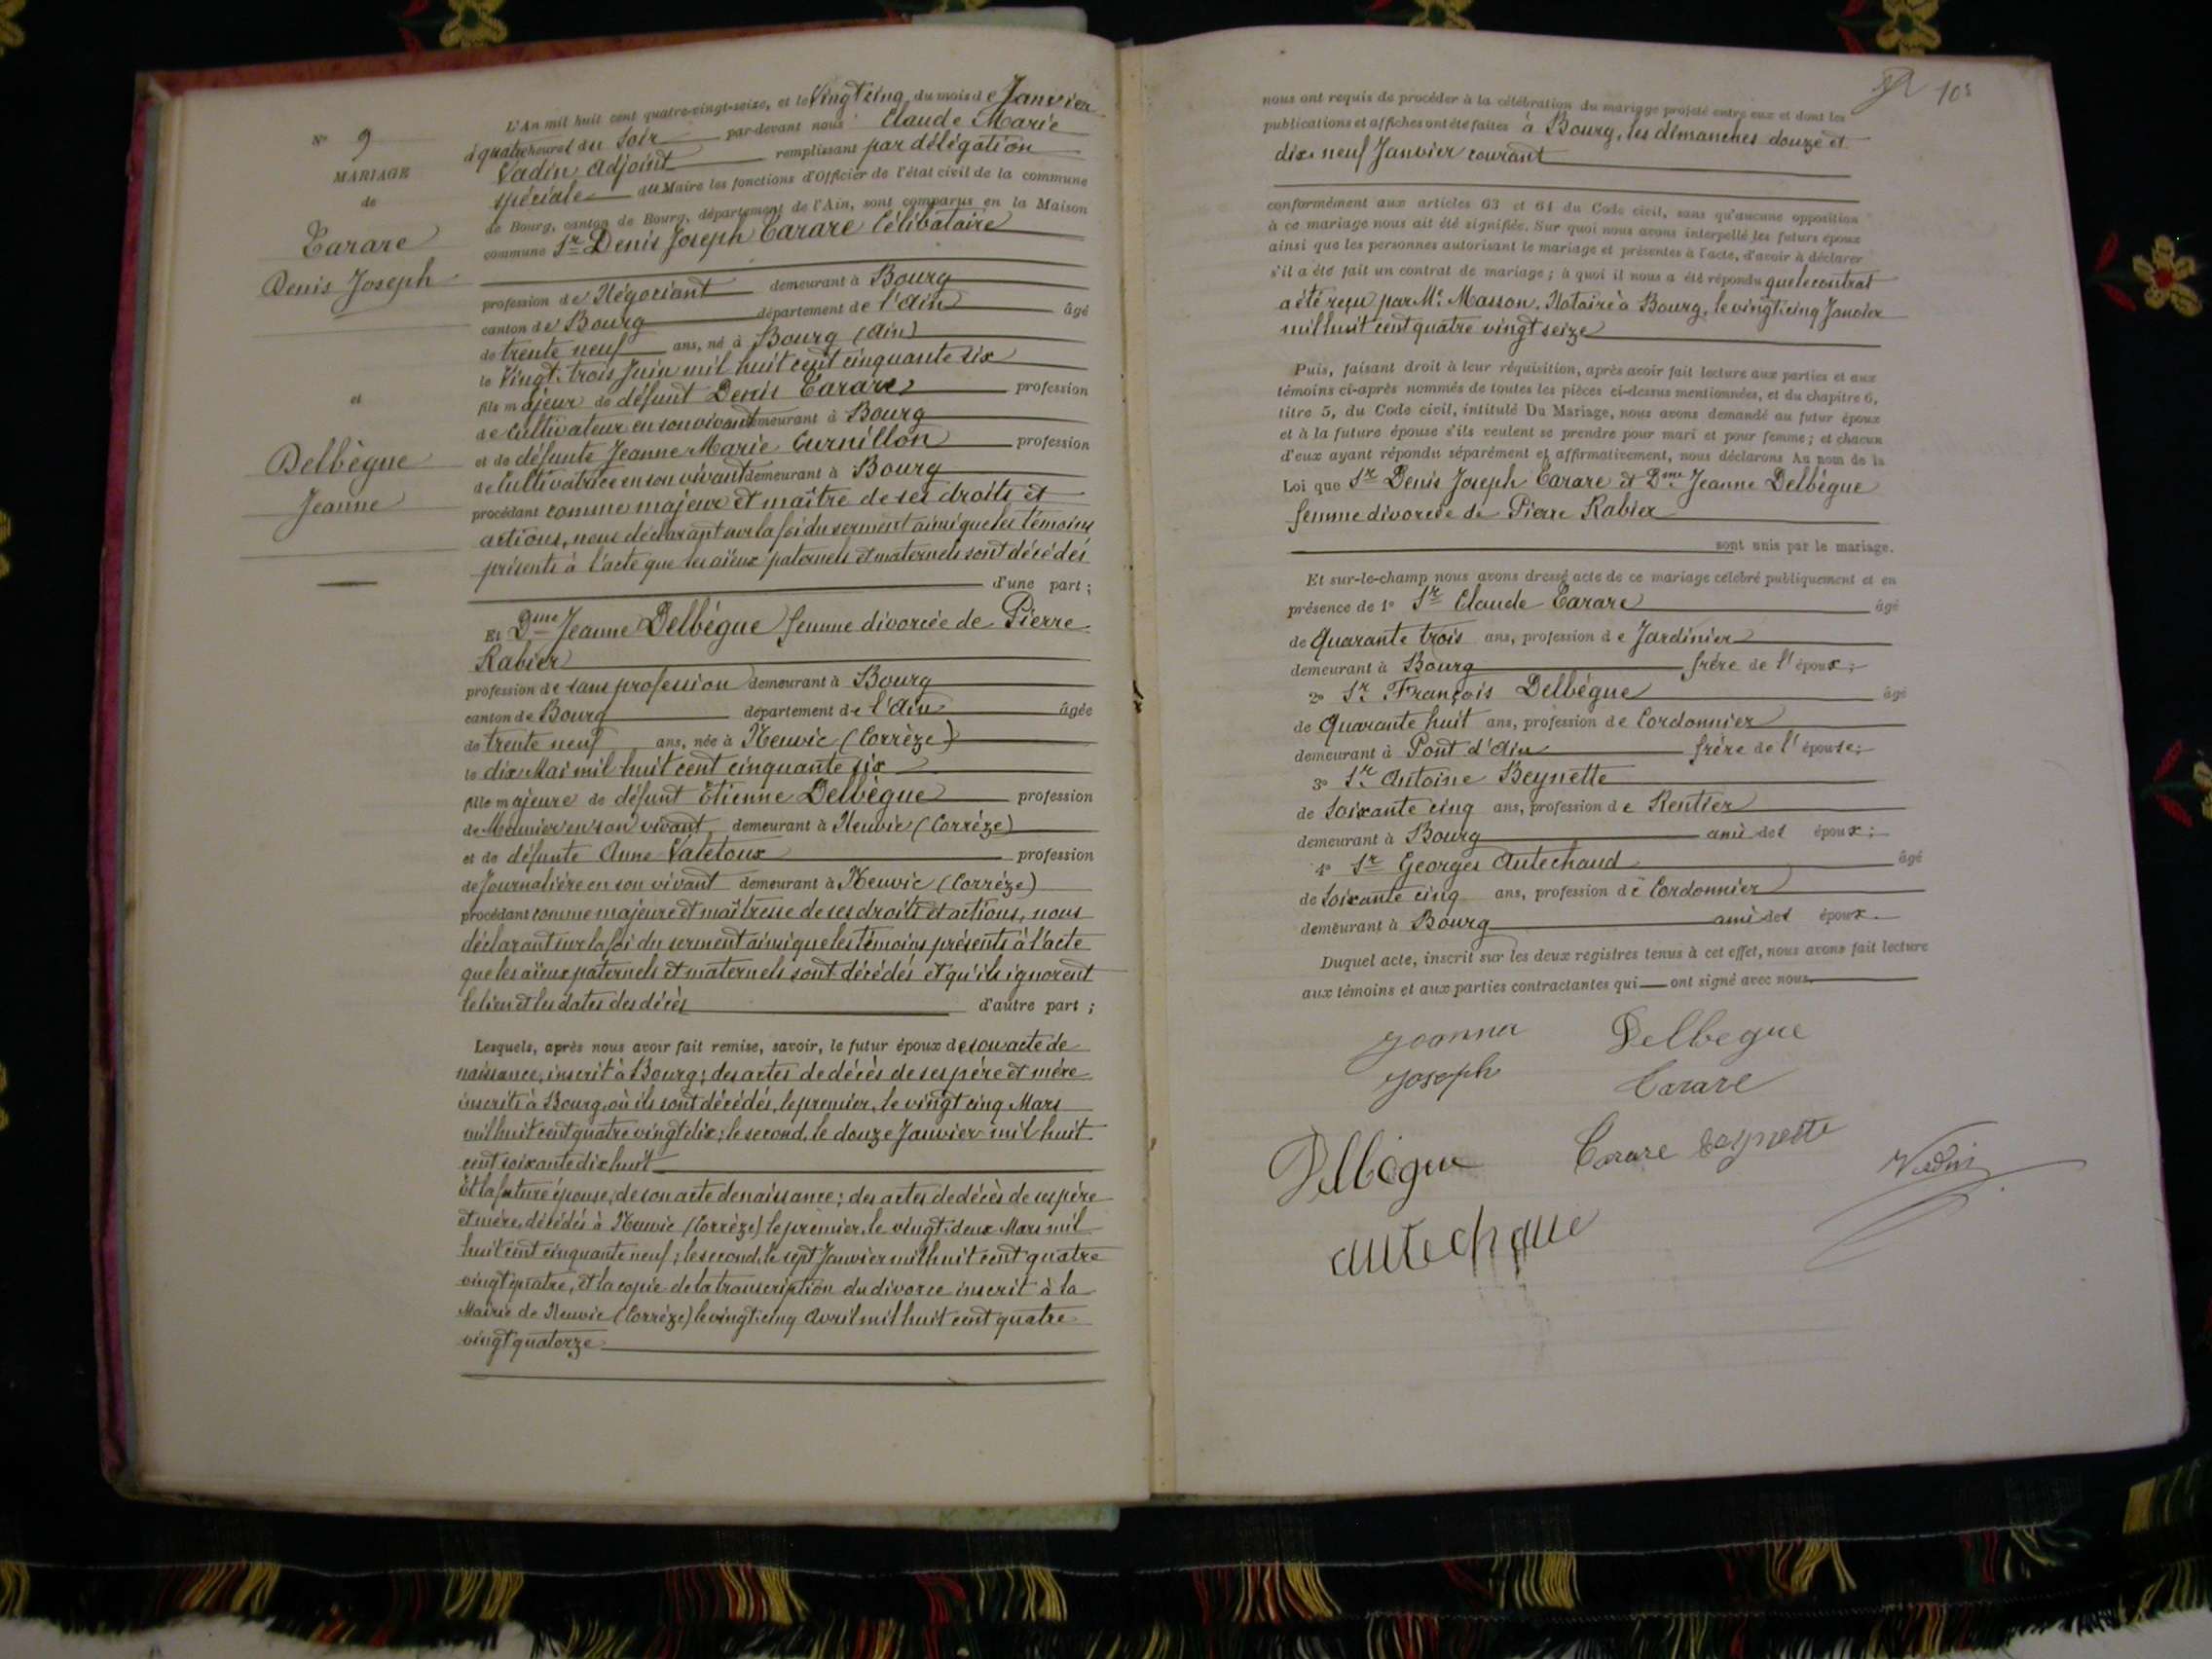 N° 9
MARIAGE
de
Carare
Denis Joseph
et
Delbègue
Jeanne
L'An mil huit cent quatre-vingt-seize, et le Vingt cinq du mois de Janvier
à quatre heures du Soir par-devant nous Claude Marie
Vadin Adjoint remplissant par délégation
spéciale du Maire les fonctions d'Officier de l'état civil de la commune
de Bourg, canton de Bourg, département de l'Ain, sont comparus en la Maison
commune Sr Denis Joseph Carare Célibataire
profession de Négociant demeurant à Bourg
canton de Bourg département de l'Ain âgé
de trente neuf ans, né à Bourg (Ain)
le Vingt-trois Juin mil huit cent cinquante six
fils majeur de défunt Denis Carare profession
de Cultivateur en son vivant demeurant à Bourg
et de défunte Jeanne Marie Curnillon profession
de Cultivatrice en son vivant demeurant à Bourg
procédant comme majeur et maître de ses droits et
actions, nous déclarant sur la foi du serment ainsi que les témoins
présents à l'acte que les aïeux paternels et maternels sont décédés
d'une part ;
Et Dme Jeanne Delbégue femme divorcée de Pierre
Rabier
profession de sans profession demeurant à Bourg
canton de Bourg département de l'Ain âgée
de trente neuf ans, née à Neuvic (Corrèze)
le dix Mai mil huit cent cinquante six
fille majeure de défunt Etienne Delbègue profession
de Meunier en son vivant demeurant à Neuvic (Corrèze)
et de défunte Anne Valétoux profession
de Journalière en son vivant demeurant à Neuvic (Corrèze)
procédant comme majeure et maîtresse de ses droits et actions, nous
déclarant sur la foi du serment ainsi que les témoins présents à l'acte
que les aïeux paternels et maternels sont décédés et qu'ils ignorent
le lieu et les dates des décès d'autre part ;
Lesquels, après nous avoir fait remise, savoir, le futur époux de son acte de
naissance, inscrit à Bourg ; des actes de décès de ses père et mère
inscrits à Bourg, où ils sont décédés, le premier, le vingt cinq Mars
mil huit cent quatre vingt dix ; le second, le douze Janvier mil huit
cent soixante dix huit
Et la future épouse, de son acte de naissance ; des actes de décès de ses père
et mère, décédés à Neuvic (Corrèze) le premier, le vingt-deux Mars mil
huit cent cinquante neuf ; le second, le sept Janvier mil huit cent quatre
vingt quatre, et la copie de la transcription du divorce inscrit à la
Mairie de Neuvic (Corrèze) le vingt-cinq Avril mil huit cent quatre
vingt quatorze
10
nous ont requis de procéder à la célébration du mariage projeté entre eux et dont les
publications et affiches ont été faites à Bourg, les dimanches douze et
dix-neuf Janvier courant
conformément aux articles 63 et 64 du Code civil, sans qu'aucune opposition
à ce mariage nous ait été signifiée. Sur quoi nous avons interpellé les futurs époux
ainsi que les personnes autorisant le mariage et présentes à l'acte, d'avoir à déclarer
s'il a été fait un contrat de mariage ; à quoi il nous a été répondu que le contrat
a été reçu par Me Masson, Notaire à Bourg, le vingt-cinq Janvier
mil huit cent quatre vingt seize
Puis, faisant droit à leur réquisition, après avoir fait lecture aux parties et aux
témoins ci-après nommés de toutes les pièces ci-dessus mentionnées, et du chapitre 6,
titre 5, du Code civil, intitulé Du Mariage, nous avons demandé au futur époux
et à la future épouse s'ils veulent se prendre pour mari et pour femme ; et chacun
d'eux ayant répondu séparément et affirmativement, nous déclarons Au nom de la
Loi que Sr Denis Joseph Carare et Dme Jeanne Delbégue
femme divorcée de Pierre Rabier
sont unis par le mariage.
Et sur-le-champ nous avons dressé acte de ce mariage célébré publiquement et en
présence de 1° Sr Claude Carare âgé
de Quarante trois ans, profession de Jardinier
demeurant à Bourg frère de l'époux ;
2° Sr François Delbégue âgé
de Quarante huit ans, profession de Cordonnier
demeurant à Pont d'Ain frère de l'épouse ;
3° Sr Antoine Beynette
de Soixante cinq ans, profession de Rentier
demeurant à Bourg ami des époux ;
4° Sr Georges Autechaud âgé
de Soixante cinq ans, profession de Cordonnier
demeurant à Bourg ami des époux.
Duquel acte, inscrit sur les deux registres tenus à cet effet, nous avons fait lecture
aux témoins et aux parties contractantes qui ont signé avec nous.
Joanna Delbegue
Joseph Carare
Delbègue Carare Beynette Vadin
autechaue